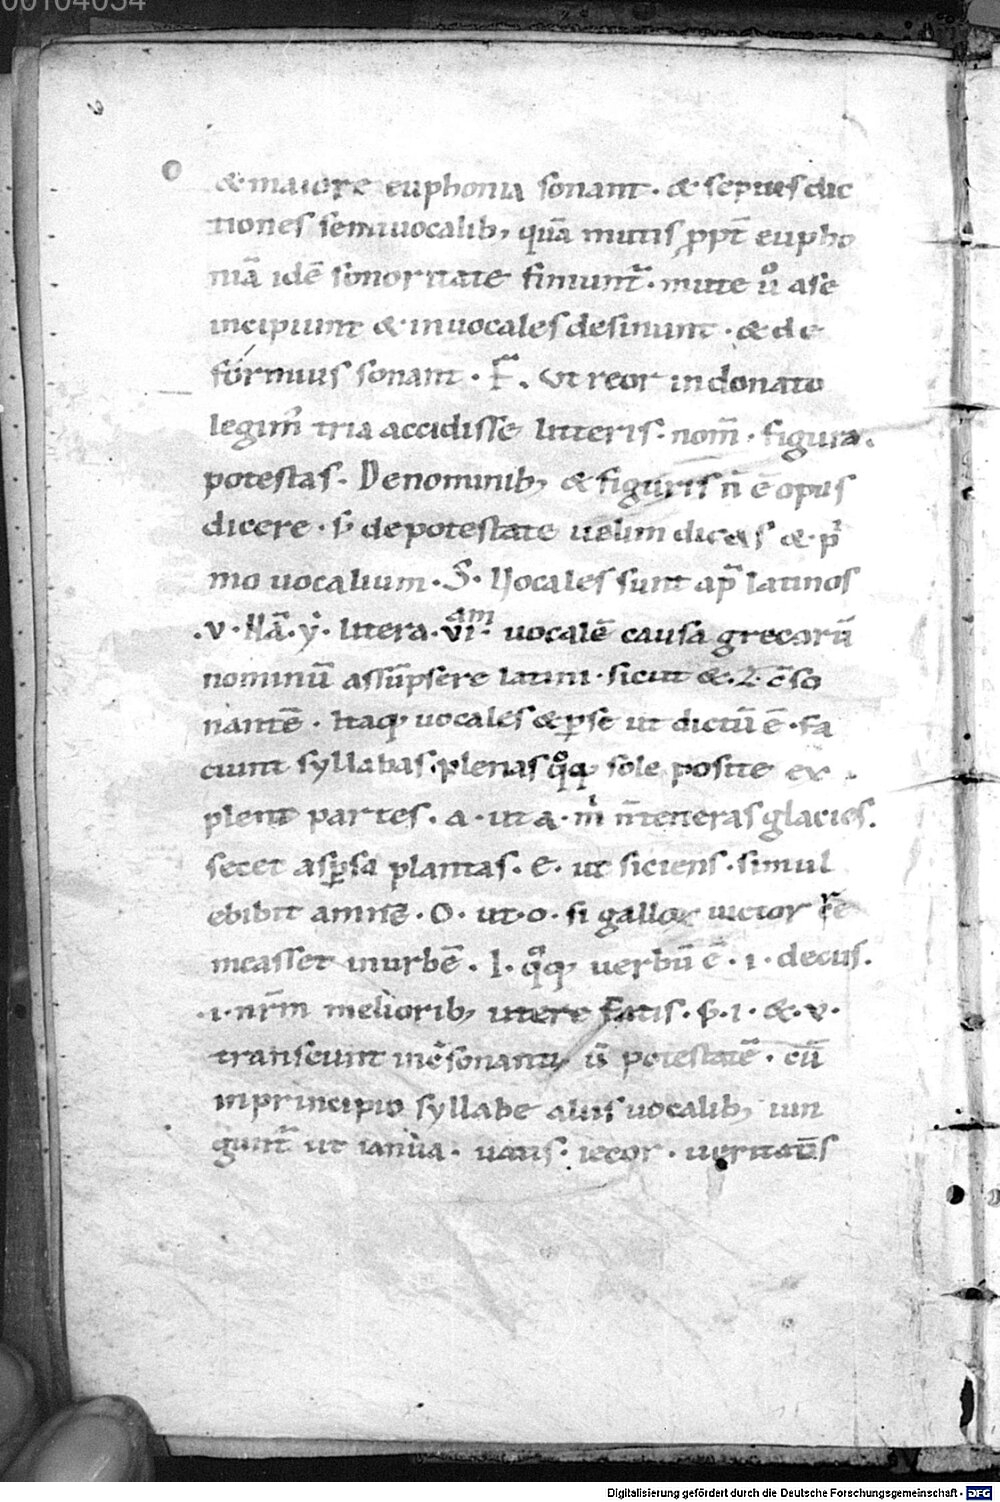 00104054
& maiore euphonia sonant · & sepius dic
tiones semiuocalib; quā mutis ꝓpt̄ eupho
niā idē sonoritate finiunt̄ · mute ů a se
incipiunt & in uocales desinunt · & de
formius sonant · F̄ . Vt reor in donato
legim̄ tria accidisse litteris · nom̄ · figura ·
potestas · De nominib; & figuris n̄ ē opus
dicere · s; de potestate uelim dicas & p̄
mo uocalium · S · Uocales sunt ap̄ latinos
· v · Nā · ẏ · littera · vi am · uocalē causa grecorū
nominū assūpsere latini · sicut & · z · c̄so
nantē · Itaq; uocales & ꝑ se ut dictū ē · fa
ciunt syllabas · plenas qͦq; sole posite ex
plent partes · a · ut a · m̍ n̄ teneras glacies ·
secet asꝑsa plantas · e · ut siciens · simul
ebibit amnē · O · ut · o · si gallor uictor
measset in urbē · I · qͦq; uerbū ē · i · decus ·
· i · nr̄m meliorib; utere fatis · S; · i · & · v ·
transeunt in c̄sonantiū potestatē · cū
in principio syllabe aliis uocalib; iun
gunt̄ ut ianua · uatis · iecor · ueritatis
Digitalisierung gefördert durch die Deutsche Forschungsgemeinschaft - DFG